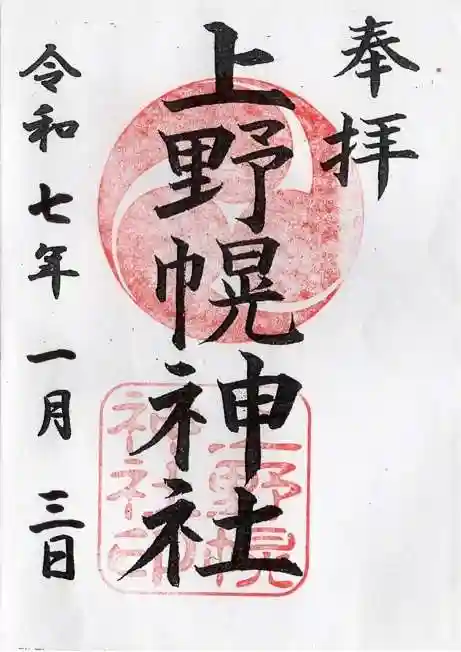 奉拝
上野幌神社
上野幌
神社印
令和七年一月三日